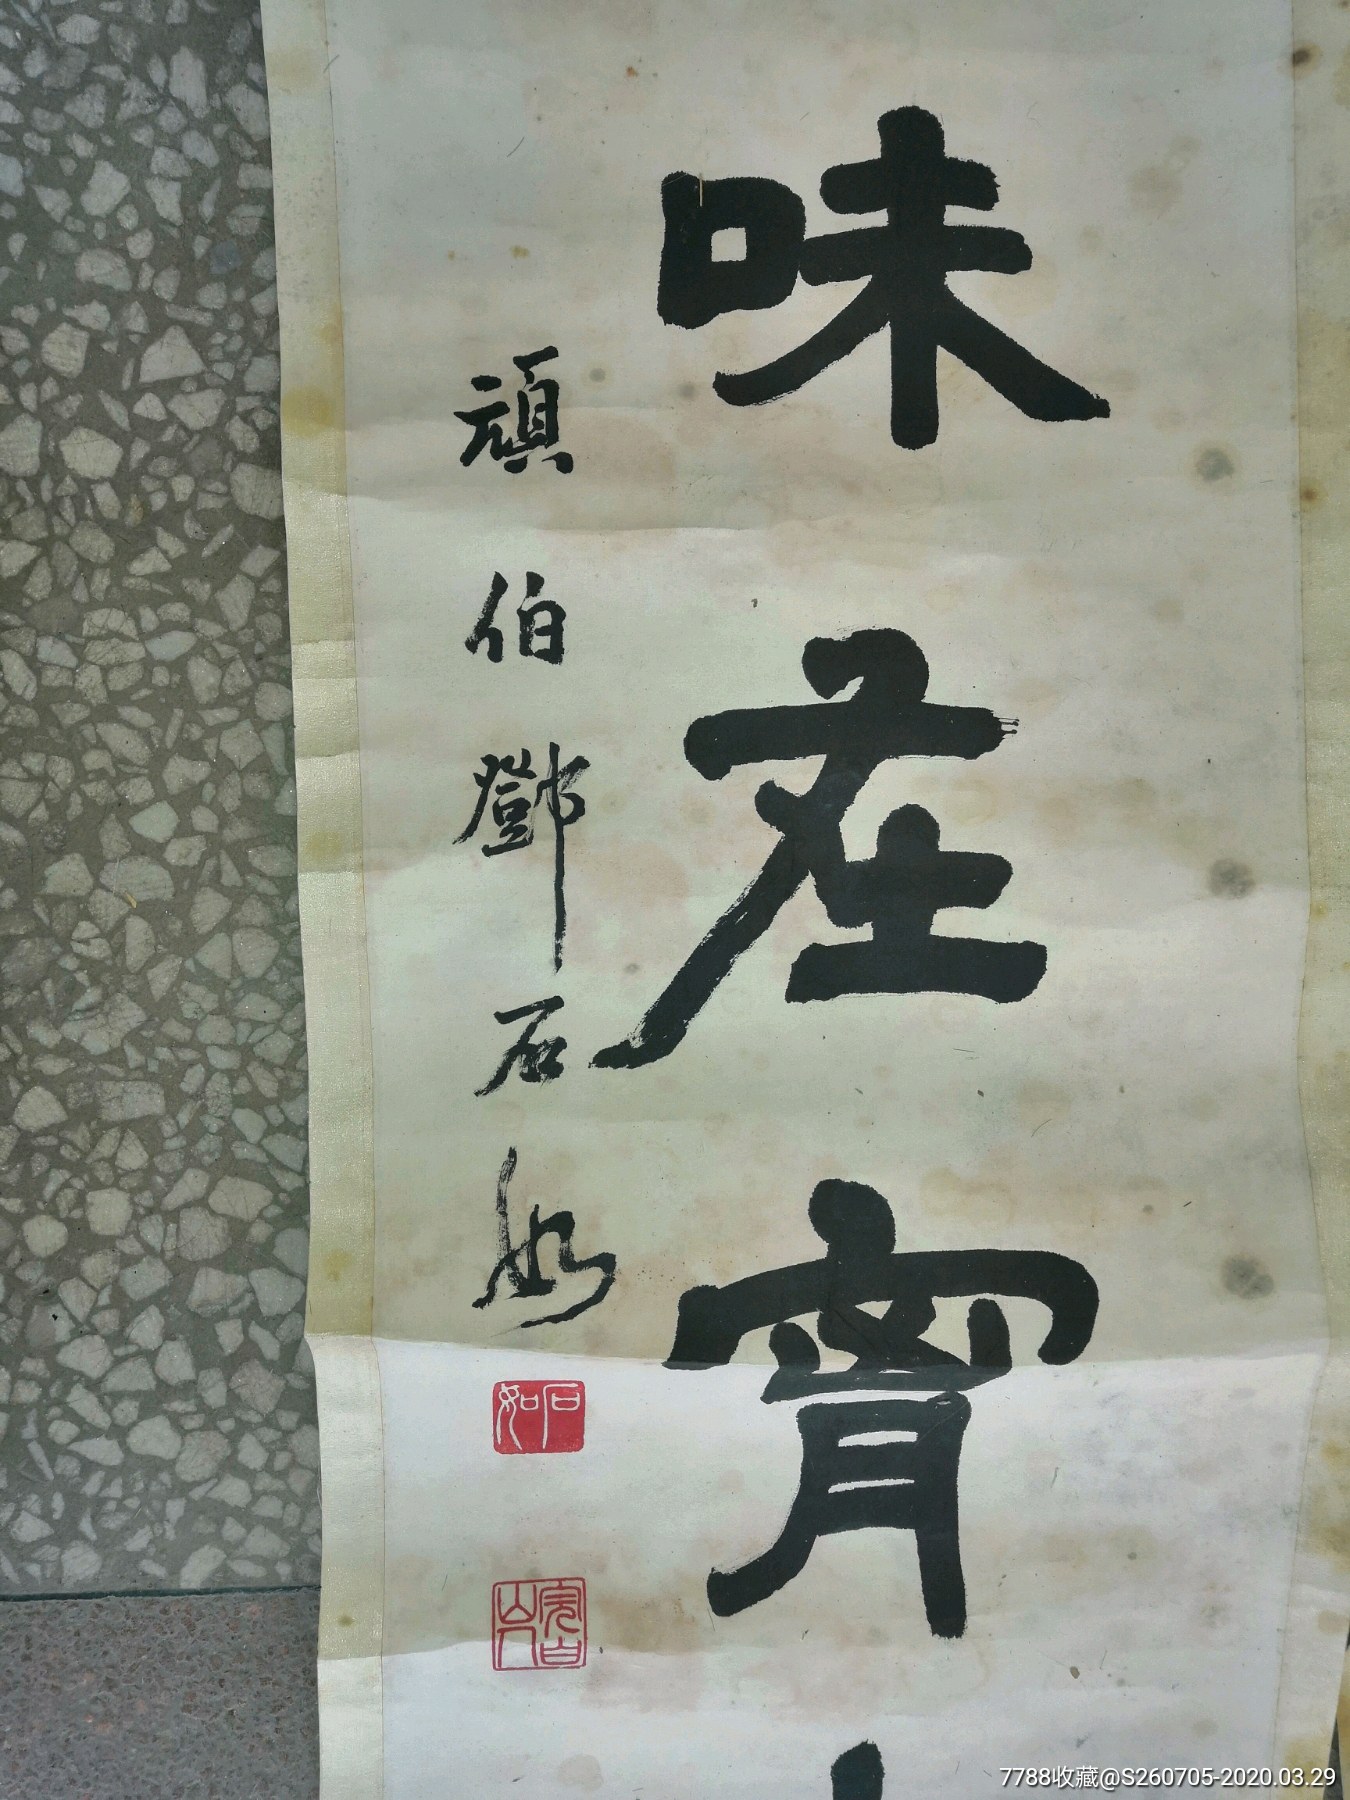 味庄宵
頑伯鄧石如
石如
完白山人
7788收藏@S260705-2020.03.29